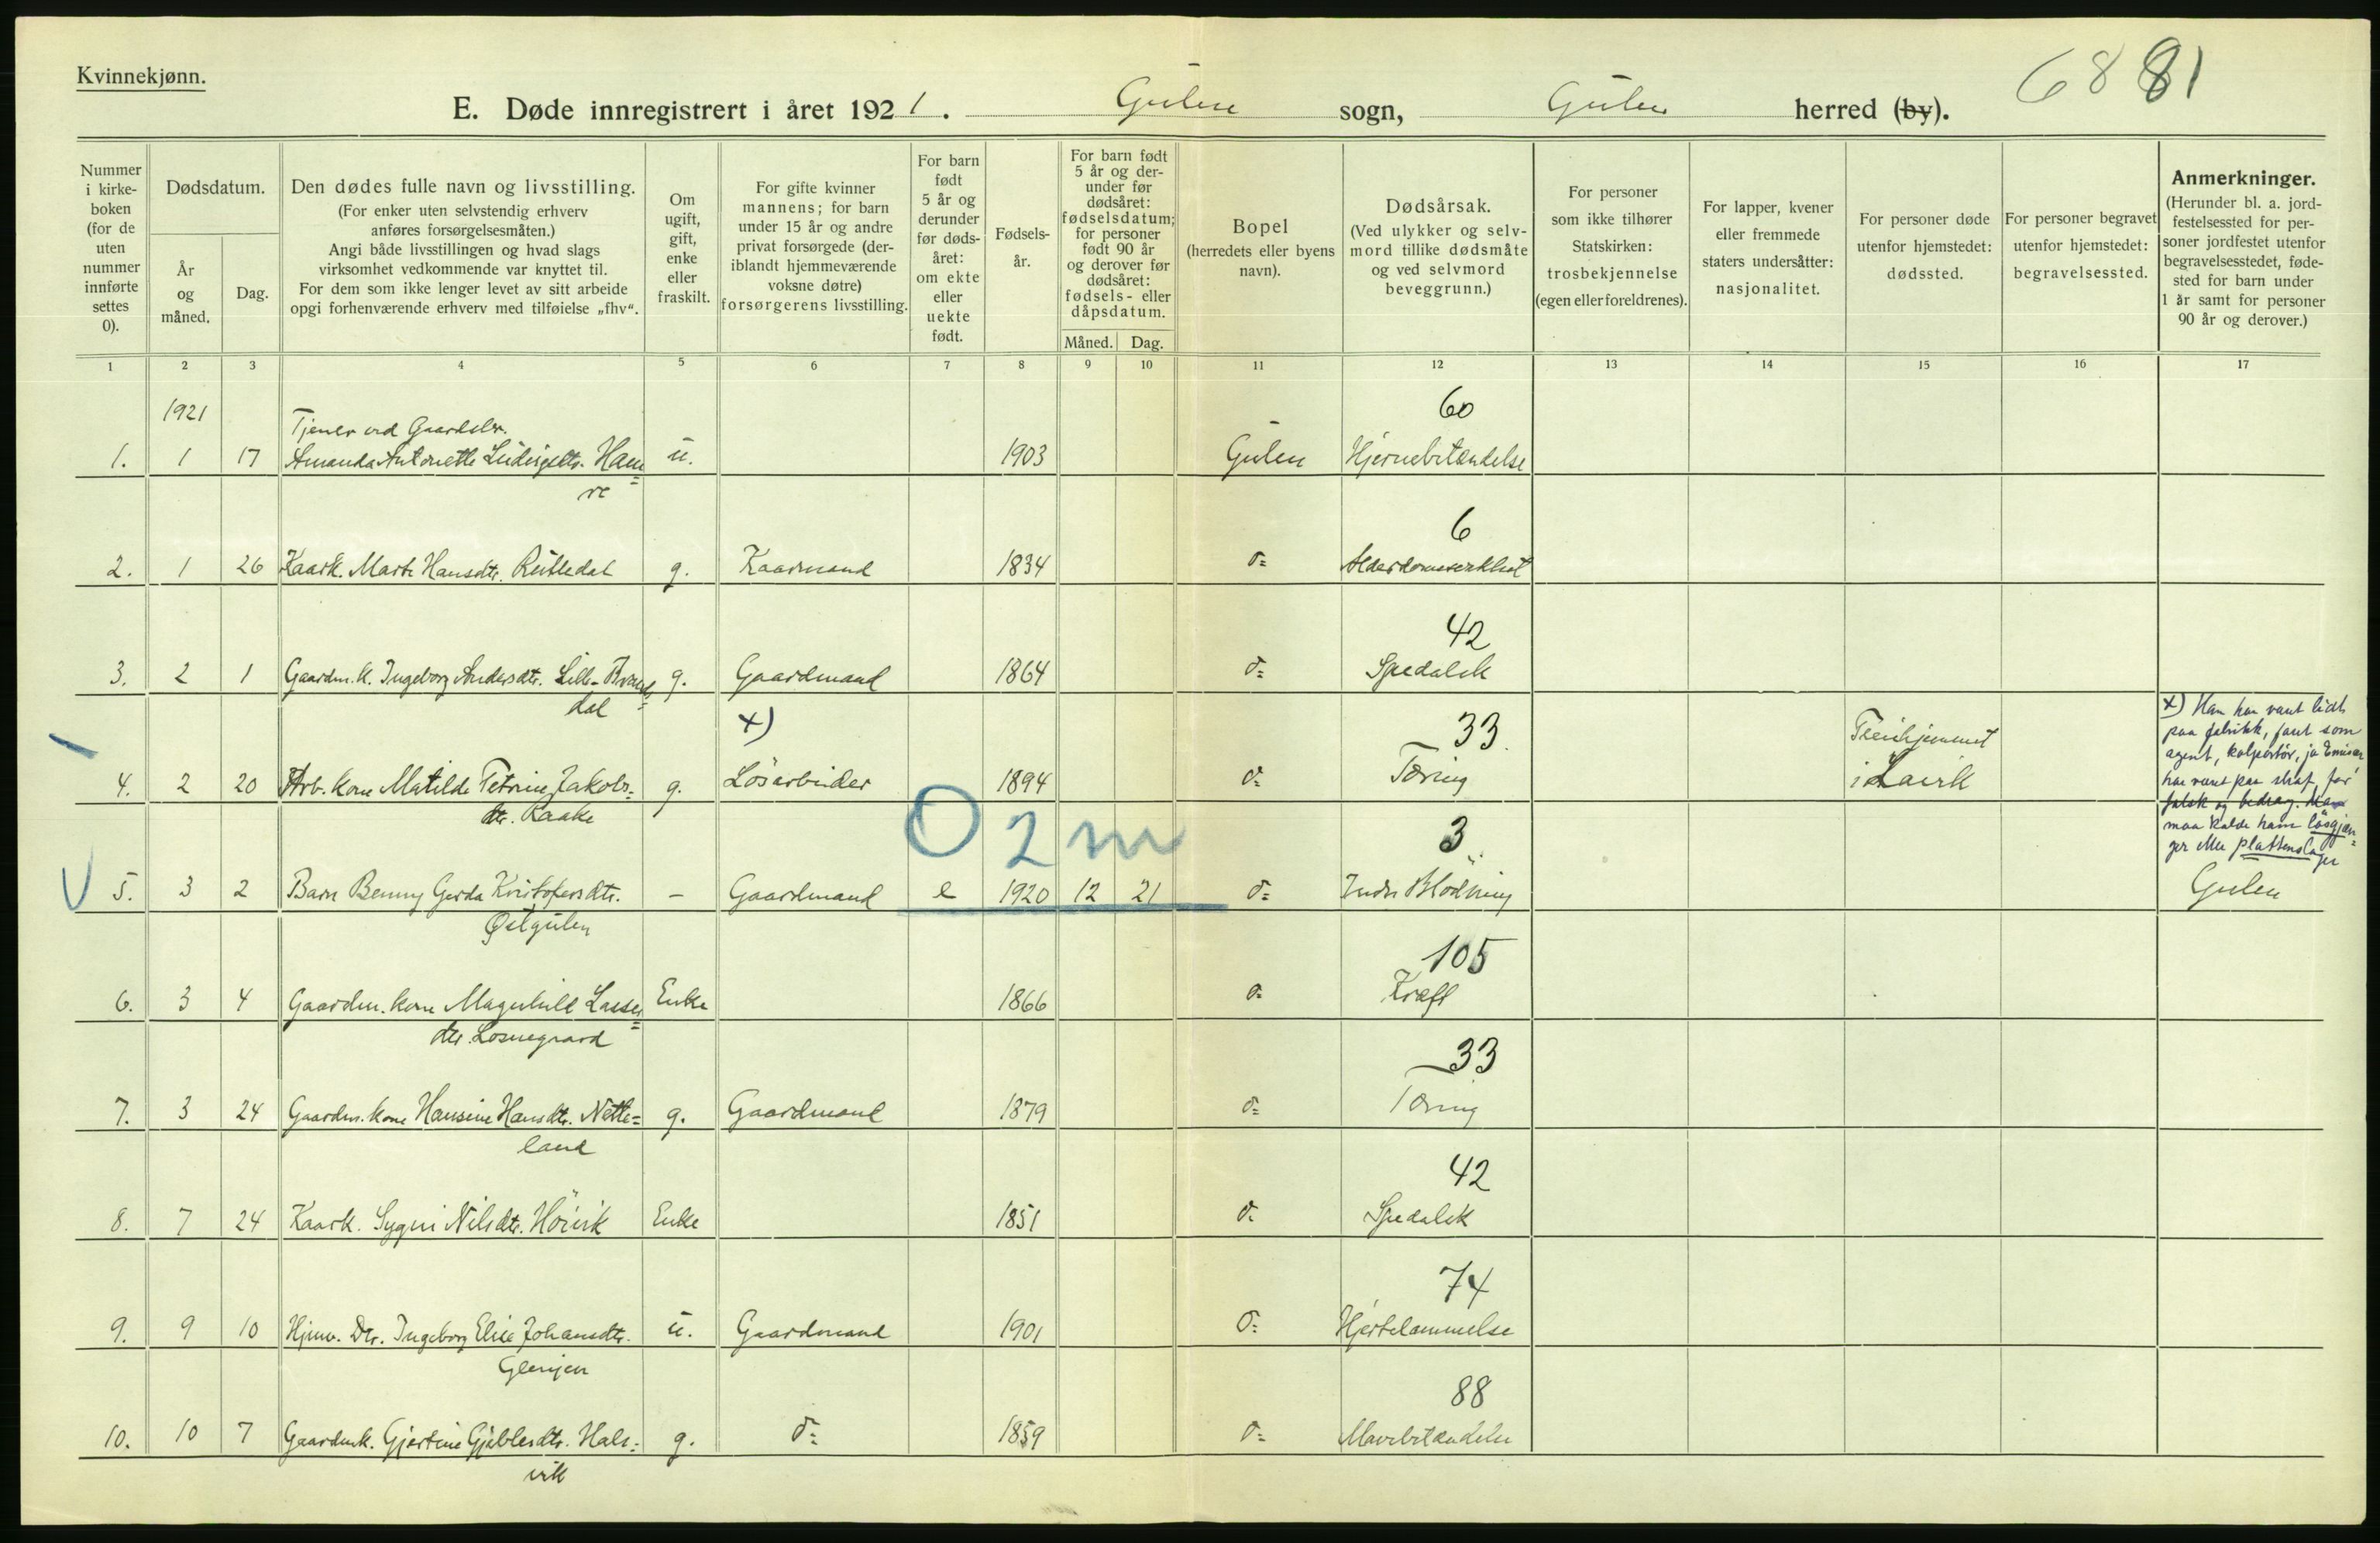 Kvinnekjønn.
6881
E. Døde innregistrert i året 1921. Gulen sogn, Gulen herred (by).
Nummer i kirke- boken (for de uten nummer innførte settes 0).
Dødsdatum.
År og måned.
Dag.
Den dødes fulle navn og livsstilling.
(For enker uten selvstendig erhverv
anføres forsørgelsesmåten.)
Angi både livsstillingen og hvad slags
virksomhet vedkommende var knyttet til.
For dem som ikke lenger levet av sitt arbeide
opgi forhenværende erhverv med tilføielse „fhv“.
Om ugift, gift, enke eller fraskilt.
For gifte kvinner
mannens; for barn
under 15 år og andre
privat forsørgede (der-
iblandt hjemmeværende
voksne døtre)
forsørgerens livsstilling.
For barn født 5 år og derunder før døds- året: om ekte eller uekte født.
Fødsels- år.
For barn født
5 år og der-
under før
dødsåret:
fødselsdatum;
for personer
født 90 år
og derover før
dødsåret:
fødsels- eller
dåpsdatum.
Måned. Dag.
Bopel
(herredets eller byens
navn).
Dødsårsak.
(Ved ulykker og selv-
mord tillike dødsmåte
og ved selvmord
beveggrunn.)
For personer
som ikke tilhører
Statskirken:
trosbekjennelse
(egen eller foreldrenes).
For lapper, kvener
eller fremmede
staters undersåtter:
nasjonalitet.
For personer døde
utenfor hjemstedet:
dødssted.
For personer begravet
utenfor hjemstedet:
begravelsessted.
Anmerkninger.
(Herunder bl. a. jord-
festelsessted for per-
soner jordfestet utenfor
begravelsesstedet, føde-
sted for barn under
1 år samt for personer
90 år og derover.)
1 2 3 4 5 6 7 8 9 10 11 12 13 14 15 16 17
1921 60
Tjener ved
1. 1 17 Amanda Antonette Ludvigsdtr. Ham= u. 1903 Gulen Hjernebetændelse
re
6
2. 1 26 Kaark. Marte Hansdtr. Rutledal g. Kaarmand 1834 d= Alderdomssvakhet
42
3. 2 1 Gaardm.k. Ingeborg Andersdtr. Lille- g. Gaardmand 1864 d= Spedalsk
dal
x) 33
4. 2 20 Arb. kone Matilde Petrine Jakobs= g. Lösarbeider 1894 d= Tæring i Lavik
dtr. Raake
x) Han har vært lidt
paa fabrikk, som
agent, kolportör, ja
har været paa straf for
falsk og bedrag. Man
maa kalde ham lösgjæn=
ger eller plattenslager
O 2 m 3
5. 3 2 Barn Benny Gerda Kristofersdtr. – Gaardmand e 1920 12 21 d= Indre Blödning Gulen
Østgulen
105
6. 3 4 Gaardm. kone Magnhild Lasse= Enke 1866 d= Kræft
dtr. Losnegaard
33
7. 3 24 Gaardm. kone Hansine Hansdtr. Nette= g. Gaardmand 1879 d= Tæring
land
42
8. 7 24 Kaark. Sygni Nilsdtr. Höivik Enke 1851 d= Spedalsk
74
9. 9 10 Hjmv. Dtr. Ingeborg Elise Johansdtr. u. Gaardmand 1901 d= Hjertelammelse
Glenjen
88
10. 10 7 Gaardmk. Gjertine Hals= g. d= 1859 d= Mavebetændelse
vik